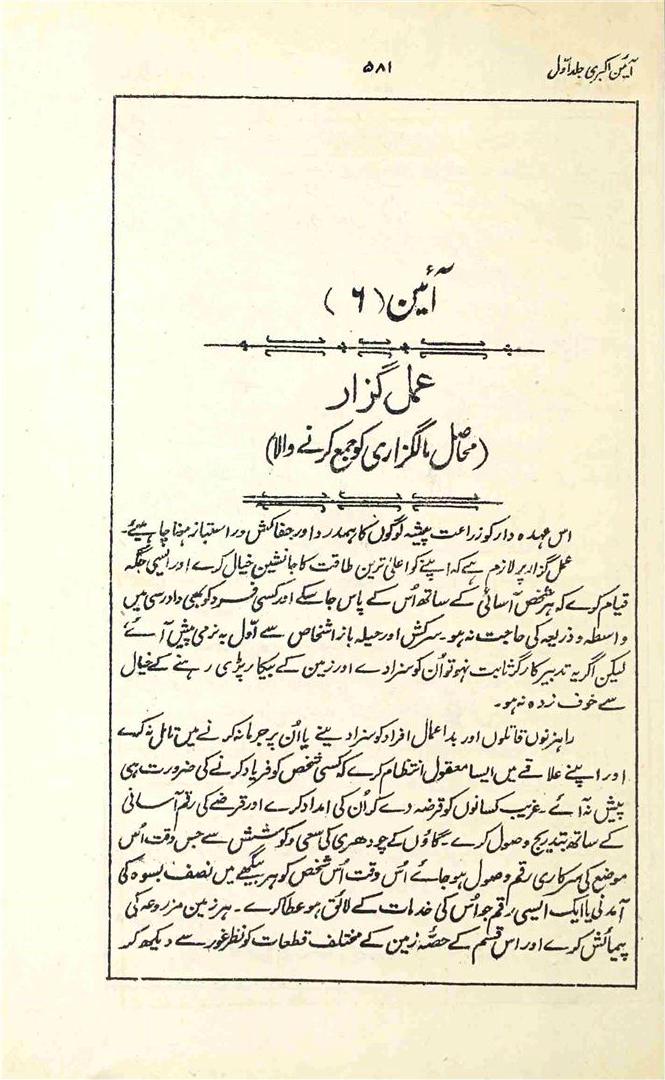 آئین اکبری جلد اوّل
۵۸۱
آئین (۶)
عمل گزار
(محاصل مالگزاری کو جمع کرنے والا)
اس عہدہ دار کو زراعت پیشہ لوگوں کا ہمدرد اور جفاکش و راستباز ہونا چاہیئے۔
عمل گزار پر لازم ہے کہ اپنے کو اعلیٰ ترین طاقت کا جانشین خیال کرے اور ایسی جگہ
قیام کرے کہ ہر شخص آسانی کے ساتھ اُس کے پاس جا سکے اور کسی فرد کو بھی داد رسی میں
واسطہ و ذریعہ کی حاجت نہ ہو۔ سرکش اور حیلہ باز اشخاص سے اوّل بہ نرمی پیش آئے
لیکن اگر یہ تدبیر کارگر ثابت نہو تو اُن کو سزا دے اور زمین کے بیکار پڑی رہنے کے خیال
سے خوف زدہ نہ ہو۔
راہزنوں قاتلوں اور بد اعمال افراد کو سزا دینے یا اُن پر جرمانہ کرنے میں تامل نہ کرے
اور اپنے علاقے میں ایسا معقول انتظام کرے کہ کسی شخص کو فریاد کرنے کی ضرورت ہی
پیش نہ آئے۔ غریب کسانوں کو قرضہ دے کر اُن کی امداد کرے اور قرضے کی رقم آسانی
کے ساتھ بتدریج وصول کرے۔ گاؤں کے چودھری کی سعی و کوشش سے جس وقت اُس
موضع کی سرکاری رقم وصول ہو جائے اُس وقت اُس شخص کو ہر بیگھے میں نصف بسوہ کی
آمدنی یا ایک ایسی رقم جو اُس کی خدمات کے لائق ہو عطا کرے۔ ہر زمین مزروعہ کی
پیمائش کرے اور اس قسم کے حصّہ زمین کے مختلف قطعات کو نظر غور سے دیکھ کر